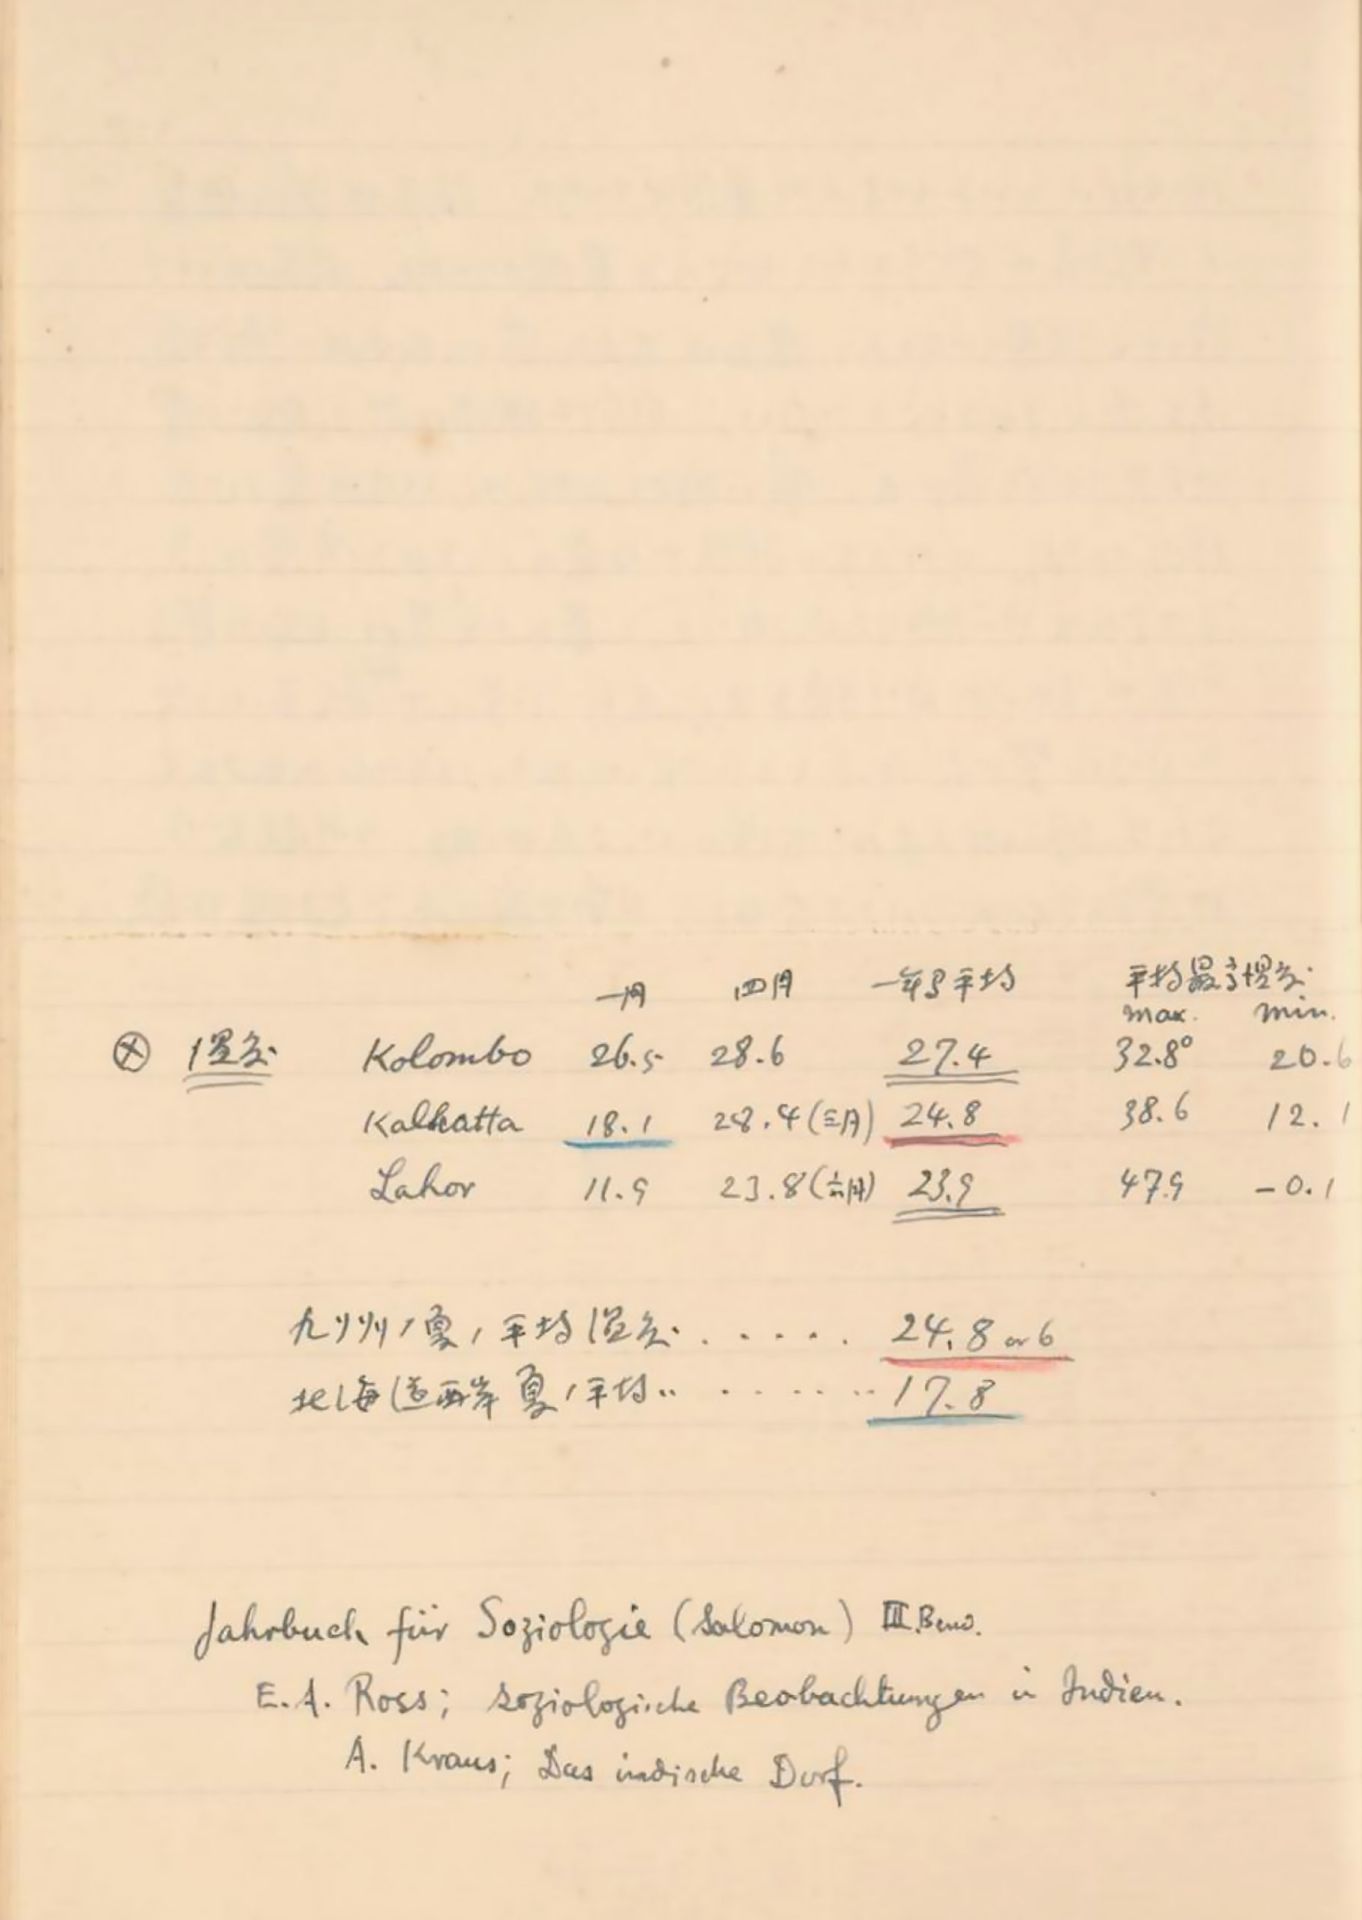 一月 四月 一年ノ平均 平均最高温度
max. min.
ⓧ 温度 Kolombo 26.5 28.6 27.4 32.8° 20.6
Kalkatta 18.1 28.4(三月) 24.8 38.6 12.1
Lahor 11.9 23.8(六月) 23.9 47.9 -0.1
九州ノ夏ノ平均温度 . . . . . 24.8 or 6
北海道西岸夏ノ平均〃 . . . . . . 17.8
Jahrbuch für Soziologie (Salomon) III. Band.
E. A. Ross; soziologische Beobachtungen in Indien.
A. Kraus; Das indische Dorf.